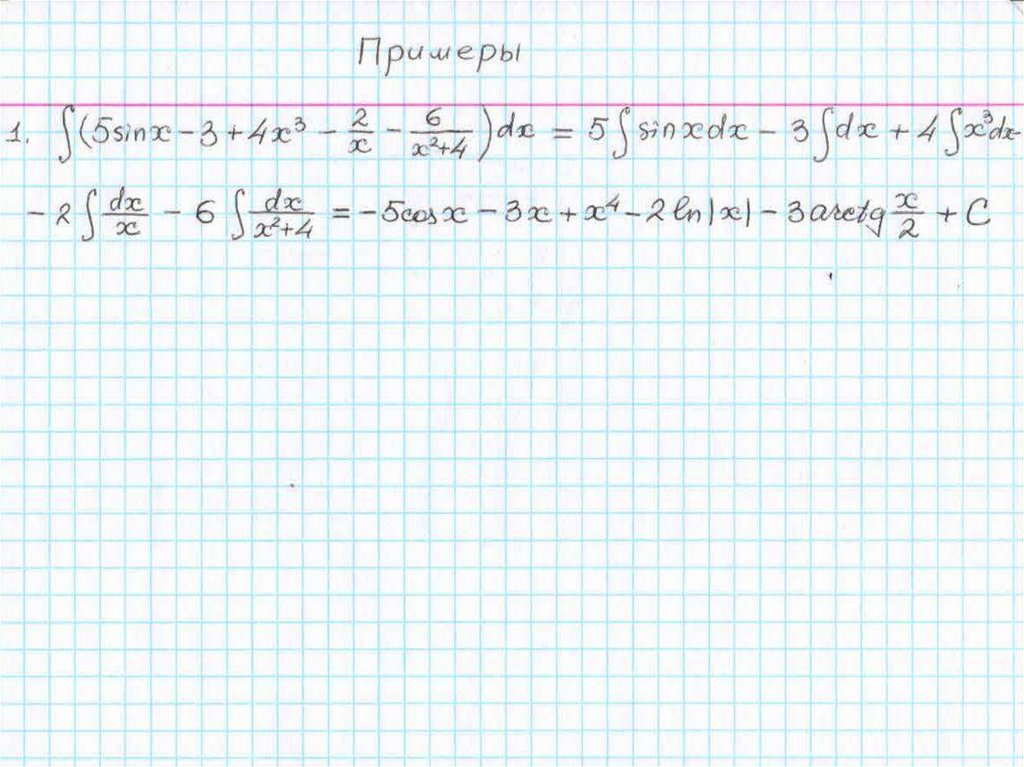 Примеры
1. ∫(5sinx − 3 + 4x³ − 2/x − 6/(x²+4))dx = 5∫sinxdx − 3∫dx + 4∫x³dx−
− 2∫dx/x − 6∫dx/(x²+4) = −5cosx − 3x + x⁴ − 2ln|x| − 3arctg x/2 + C